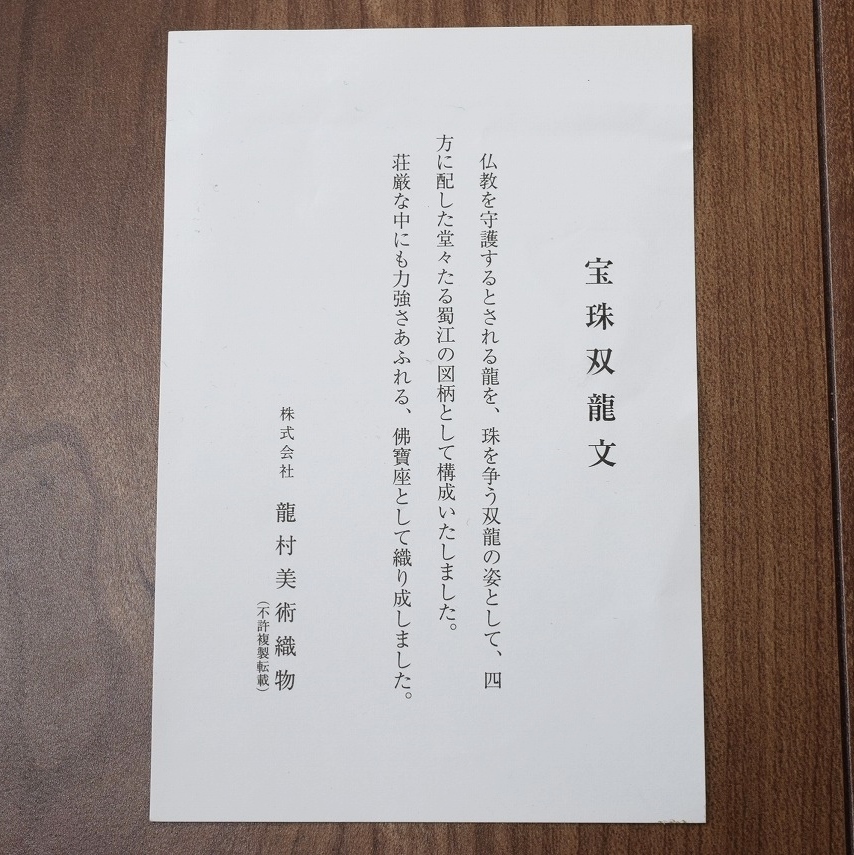 宝珠双龍文
仏教を守護するとされる龍を、珠を争う双龍の姿として、四
方に配した堂々たる蜀江の図柄として構成いたしました。
荘厳な中にも力強さあふれる、佛寶座として織り成しました。
株式会社 龍村美術織物
（不許複製転載）